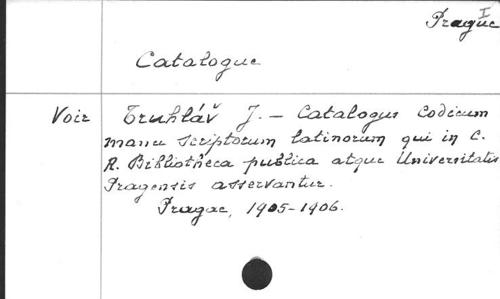 I
Prague
Catalogue
Voir Truhlář J. — Catalogus Codicum
manu scriptorum latinorum qui in C.
R. Bibliotheca publica atque Universitatis
Pragensis asservantur.
Pragae, 1905-1906.